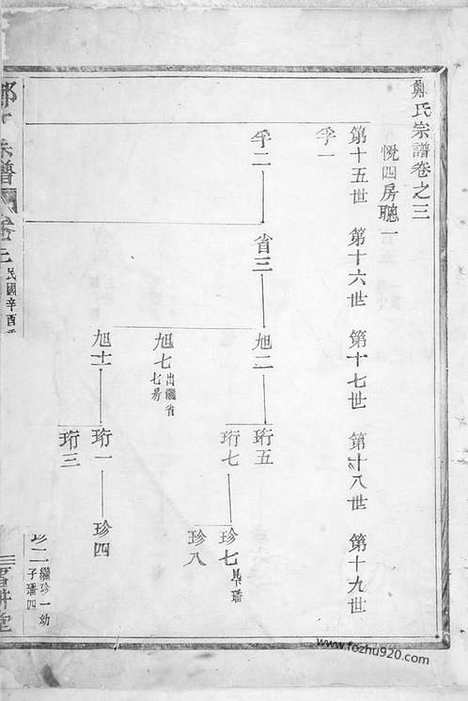 鄭氏宗譜卷之三
悅四房聰一
第十五世 第十六世 第十七世 第十八世 第十九世
孚一
孚二 省三 旭二 珩五
珩七 珍七
珍八
旭七 出繼省
旭士 珩一 珍四
珩三
珍二 繼珍一幼
子璠四
宗譜 卷三 民國辛酉
www.fozhu920.com